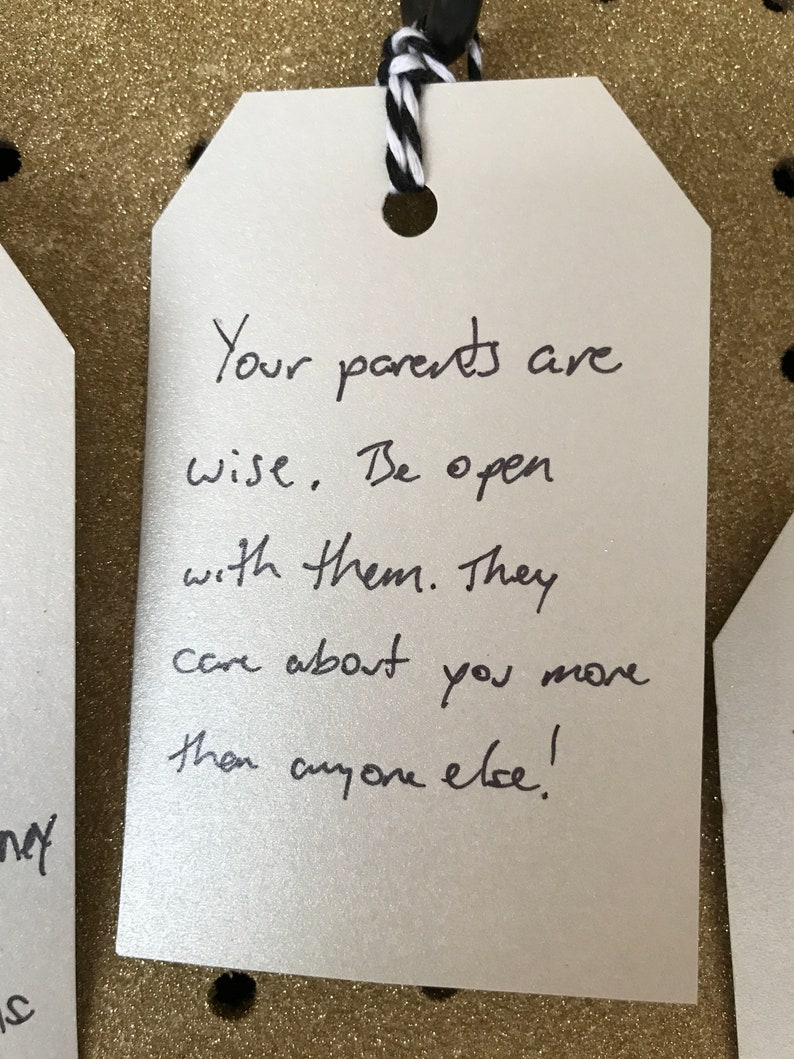 Your parents are
wise. Be open
with them. They
care about you more
then anyone else!